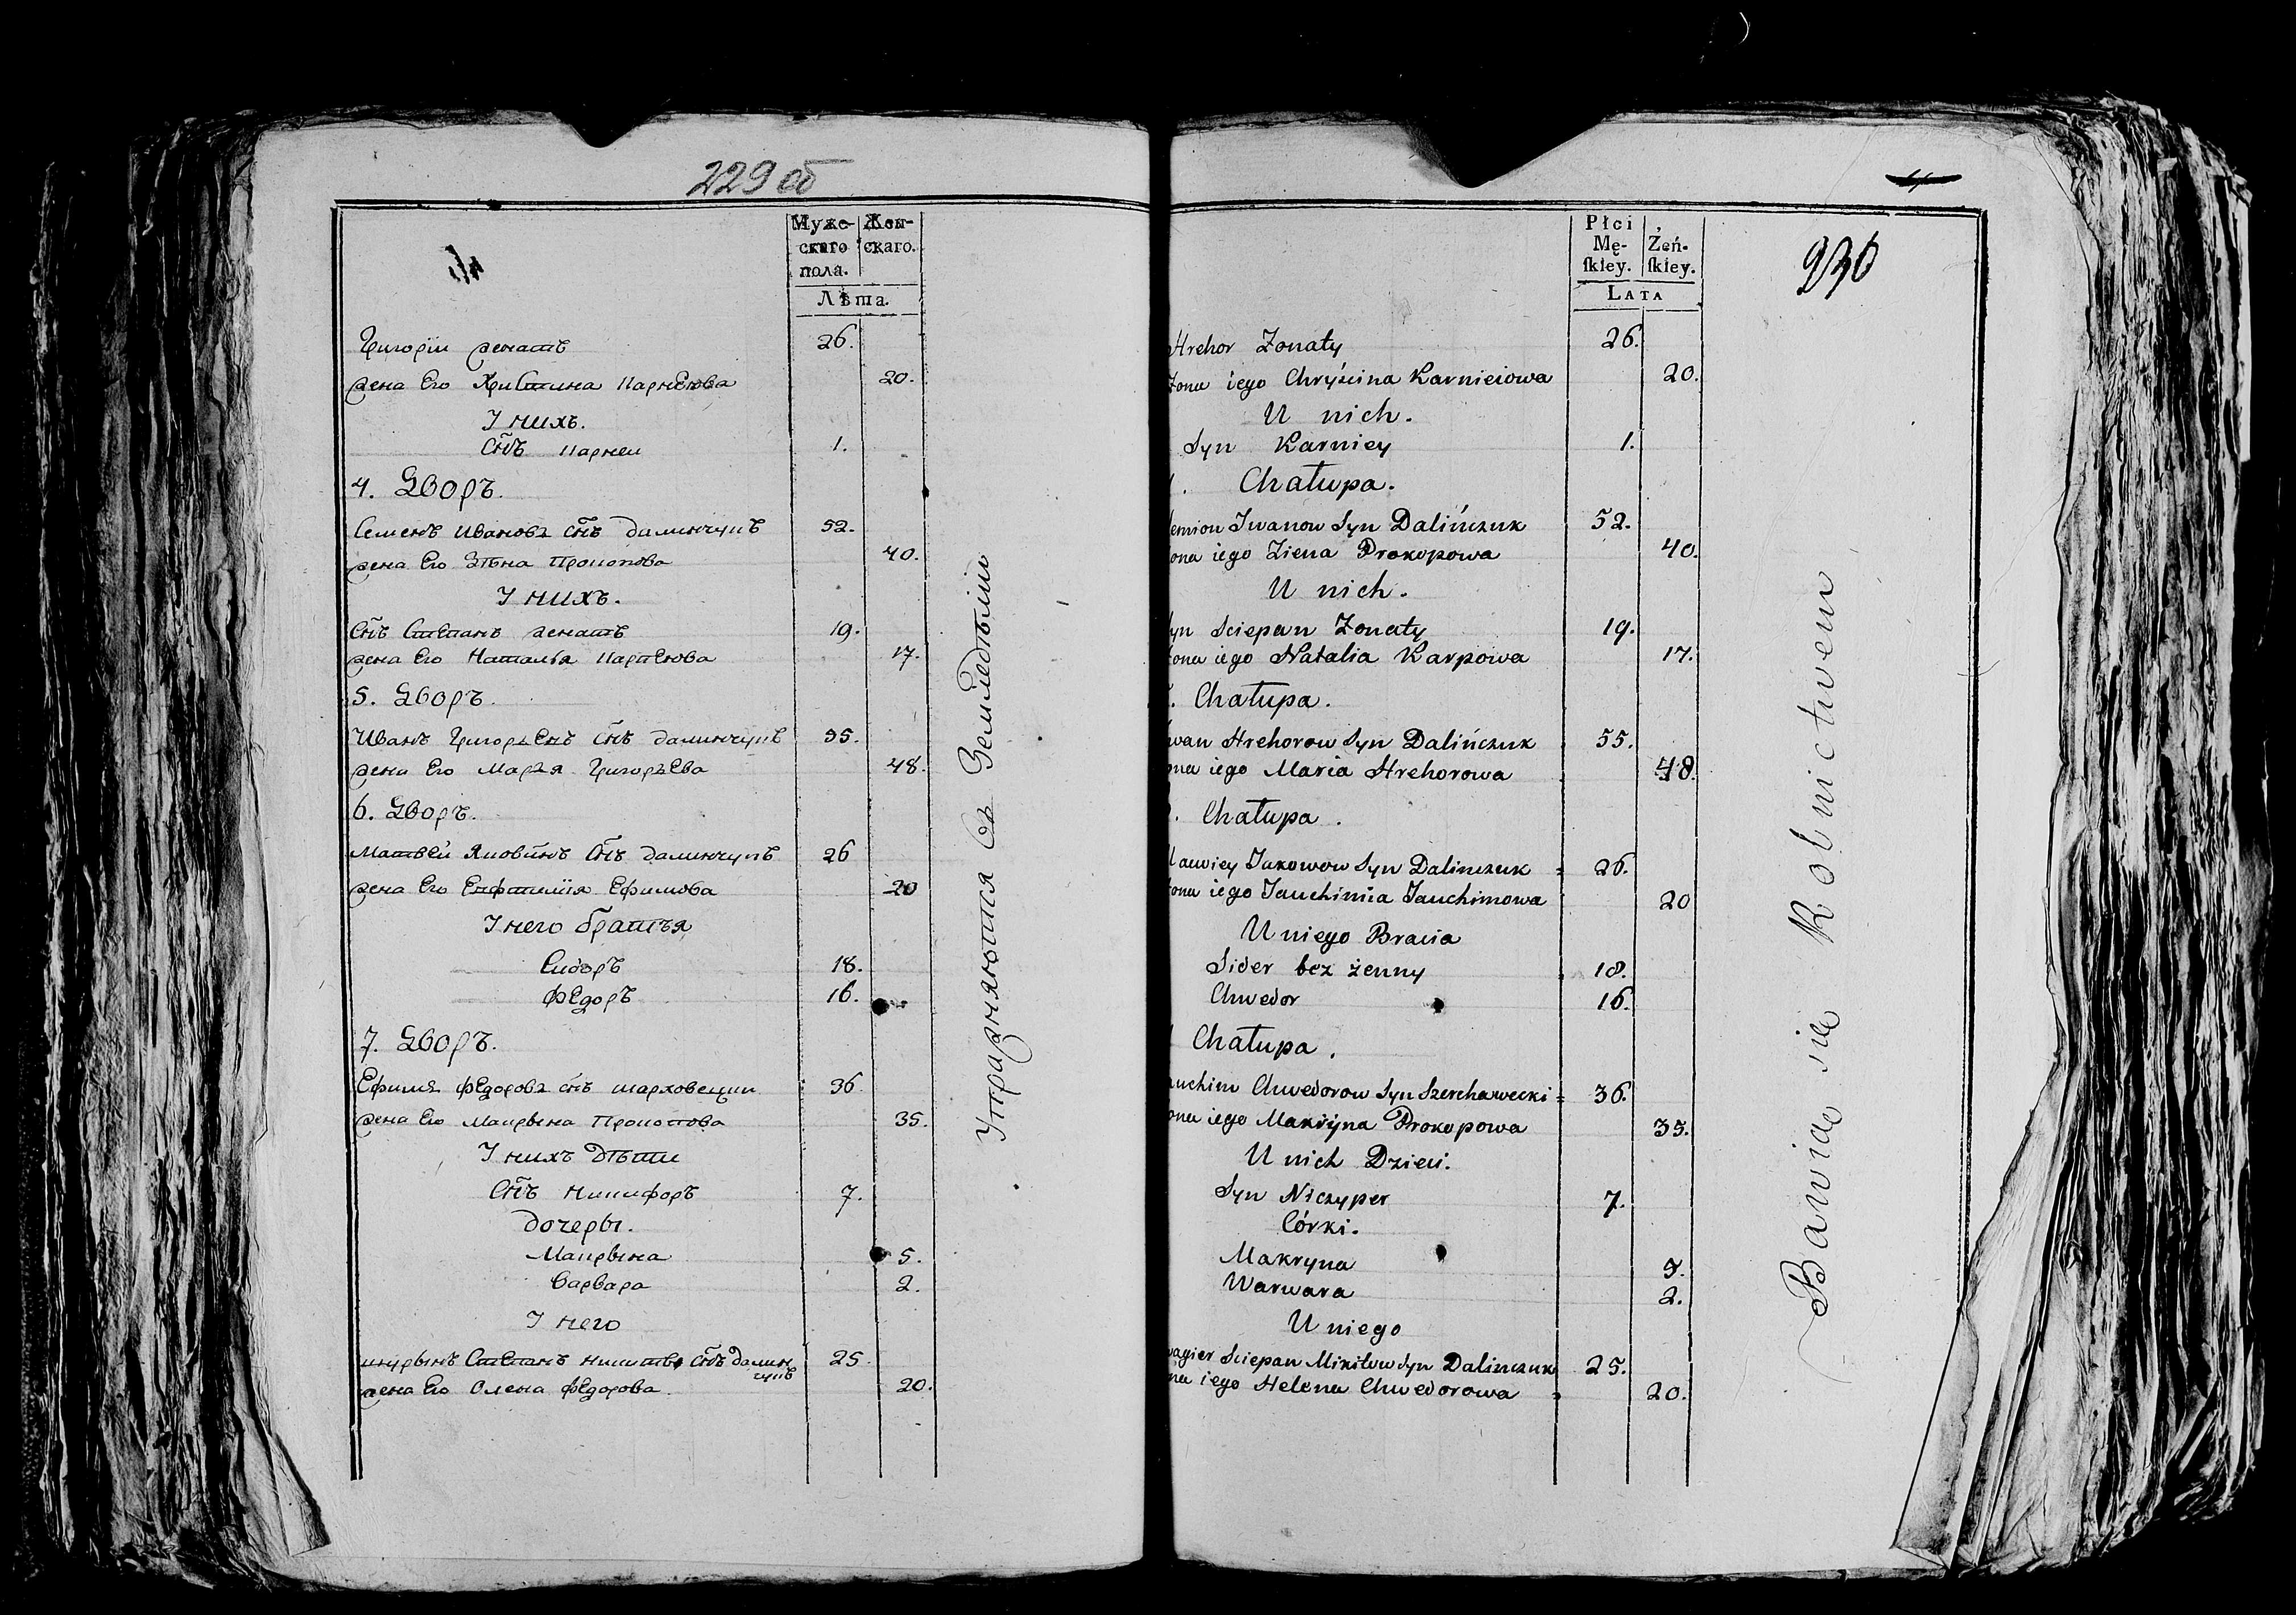 229 об
Муже-
скаго
пола.
Жен-
скаго.
Лѣта.
Григоріи женатъ 26.
жена Его Христина Карнѣева 20.
У нихъ.
Сн̃ъ Карнеи 1.
4. Дворъ.
Семенъ Ивановъ сн̃ъ Далинчукъ 52.
жена Его Зѣна Прокопова 40.
У нихъ.
Сн̃ъ Степанъ женатъ 19.
жена Его Наталья 17.
5. Дворъ.
Иванъ сн̃ъ Далинчукъ 55.
жена Его Марья Григорьева 48.
6. Дворъ.
Матвей сн̃ъ Далинчукъ 26
жена Его Ефимова 20
У него братья
Сидоръ 18.
Федоръ 16.
7. Дворъ.
Ефимъ Федоровъ сн̃ъ 36.
жена Его Макрына Прокопова 35.
У нихъ дѣти
Сн̃ъ Никифоръ 7.
дочеры.
Макрына 5.
Варвара 2.
У него
шурынъ Степанъ сн̃ъ Далин
чукъ 25.
жена Его Олена Федорова 20.
Упражняются въ Земледѣліи
Płci
Mę-
ſkiey.
Żeń-
ſkiey.
LATA
230
Hrehor Żonaty 26.
żona iego Chryścina Karnieiowa 20.
U nich.
Syn Karniey 1.
Chałupa.
emion Iwanow Syn Dalińczuk 52.
ona iego Ziena Prokopowa 40.
U nich.
yn Sciepan Żonaty 19.
ona iego Natalia Karpowa 17.
. Chałupa.
wan Hrehorow Syn Dalińczuk 55.
ona iego Maria Hrehorowa 48.
. Chałupa.
awiey Jakowow Syn Dalinczuk 26.
ona iego Jauchimia Jauchimowa 20
U niego Bracia
Sider bez żenny 18.
Chwedor 16.
Chałupa.
auchim Chwedorow Syn Szerchawecki 36.
ona iego Makryna Prokopowa 35.
U nich Dzieci.
Syn Niczyper 7.
Córki.
Makryna 5.
Warwara 2.
U niego
wagier Sciepan Mikitow Syn Dalinczuk 25.
na iego Helena Chwedorowa 20.
Bawią się Rolnictwem